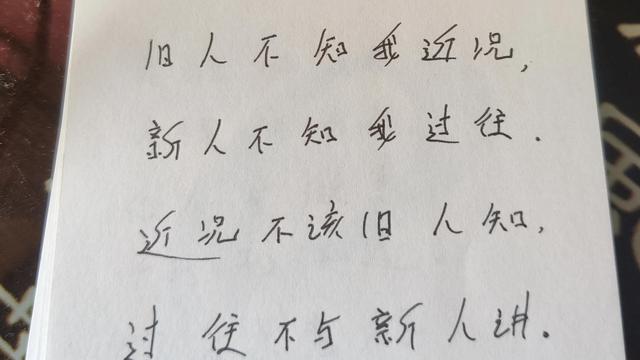 旧人不知我近况,
新人不知我过往.
近况不该旧人知,
过往不与新人讲.